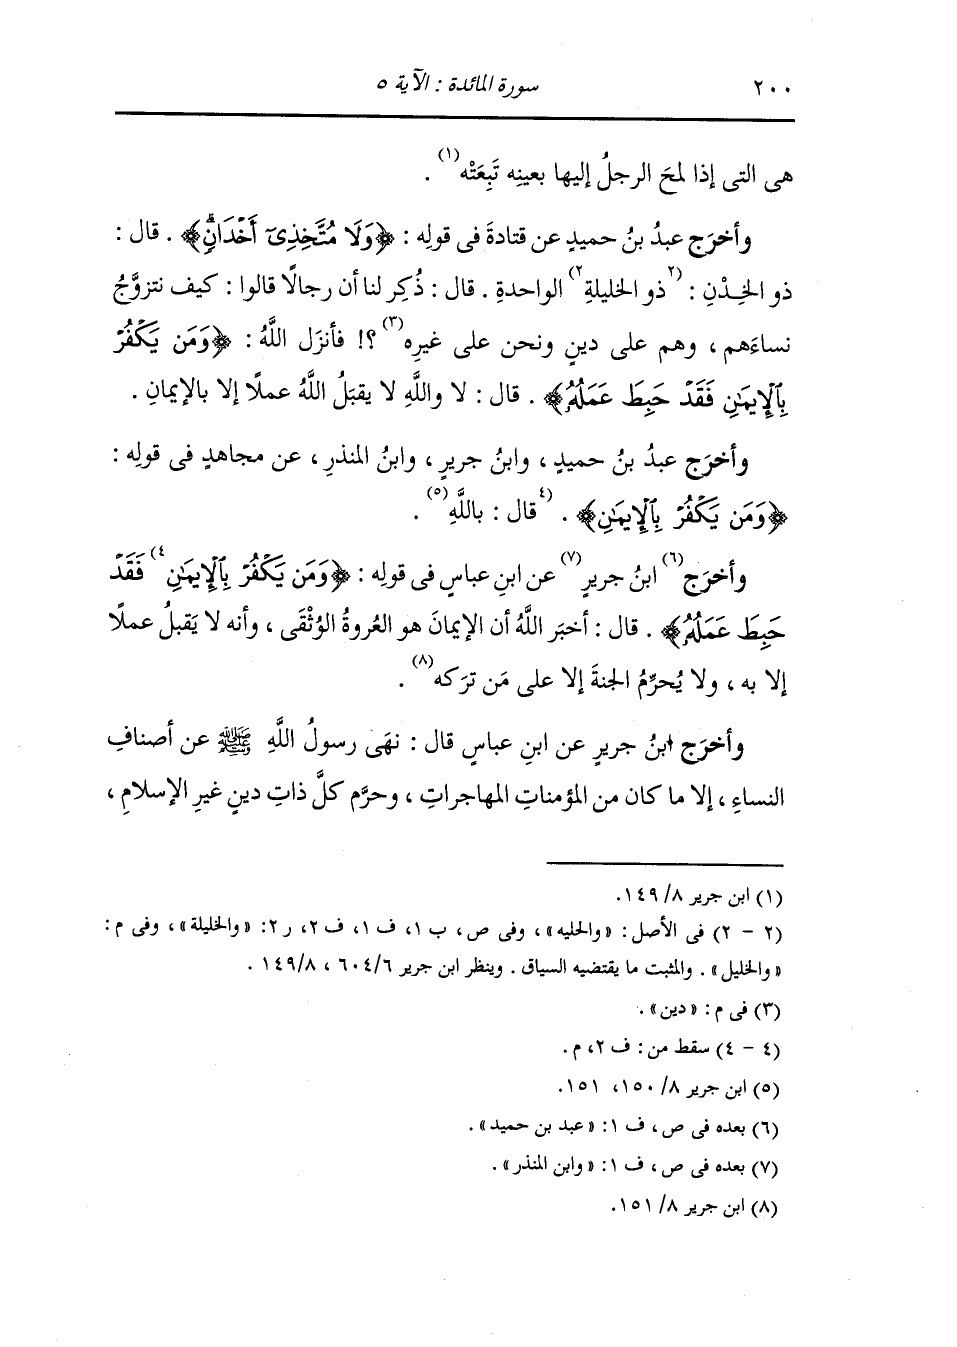 ٢٠٠ سورة المائدة : الآية ٥
هى التى إذا لمَح الرجلُ إليها بعينِه تَبِعَتْه(١) .
وأخرَج عبدُ بنُ حميدٍ عن قتادةَ فى قولِه : ﴿وَلَا مُتَّخِذِىٓ أَخْدَانٍۗ﴾ . قال :
ذو الخِدْنِ : (٢ذو الخليلةِ٢) الواحدةِ . قال : ذُكِر لنا أن رجالًا قالوا : كيف نتزوَّجُ
نساءَهم ، وهم على دينٍ ونحن على غيرِه(٣) ؟! فأنزَل اللَّهُ : ﴿وَمَن يَكْفُرْ
بِٱلْإِيمَٰنِ فَقَدْ حَبِطَ عَمَلُهُۥ﴾ . قال : لا واللَّهِ لا يقبَلُ اللَّهُ عملًا إلا بالإيمانِ .
وأخرَج عبدُ بنُ حميدٍ ، وابنُ جريرٍ ، وابنُ المنذرِ ، عن مجاهدٍ فى قولِه :
﴿وَمَن يَكْفُرْ بِٱلْإِيمَٰنِ﴾ . (٤قال : باللَّهِ(٥) .
وأخرَج(٦) ابنُ جريرٍ(٧) عن ابنِ عباسٍ فى قولِه : ﴿وَمَن يَكْفُرْ بِٱلْإِيمَٰنِ٤) فَقَدْ
حَبِطَ عَمَلُهُۥ﴾ . قال : أخبَر اللَّهُ أن الإيمانَ هو العُروةُ الوُثْقَى ، وأنه لا يَقبلُ عملًا
إلا به ، ولا يُحرِّمُ الجنةَ إلا على مَن ترَكه(٨) .
وأخرَج ابنُ جريرٍ عن ابنِ عباسٍ قال : نهَى رسولُ اللَّهِ ﷺ عن أصنافِ
النساءِ ، إلا ما كان من المؤمناتِ المهاجراتِ ، وحرَّم كلَّ ذاتِ دينٍ غيرِ الإسلامِ ،
(١) ابن جرير ٨/ ١٤٩.
(٢ - ٢) فى الأصل : «والحليه» ، وفى ص ، ب ١، ف ١، ف ٢، ر ٢: «والخليلة» ، وفى م :
«والخليل» . والمثبت ما يقتضيه السياق . وينظر ابن جرير ٦/ ٦٠٤ ، ٨/ ١٤٩ .
(٣) فى م : «دين» .
(٤ - ٤) سقط من : ف ٢، م.
(٥) ابن جرير ٨/ ١٥٠، ١٥١.
(٦) بعده فى ص ، ف ١: «عبد بن حميد» .
(٧) بعده فى ص ، ف ١: «وابن المنذر» .
(٨) ابن جرير ٨/ ١٥١.